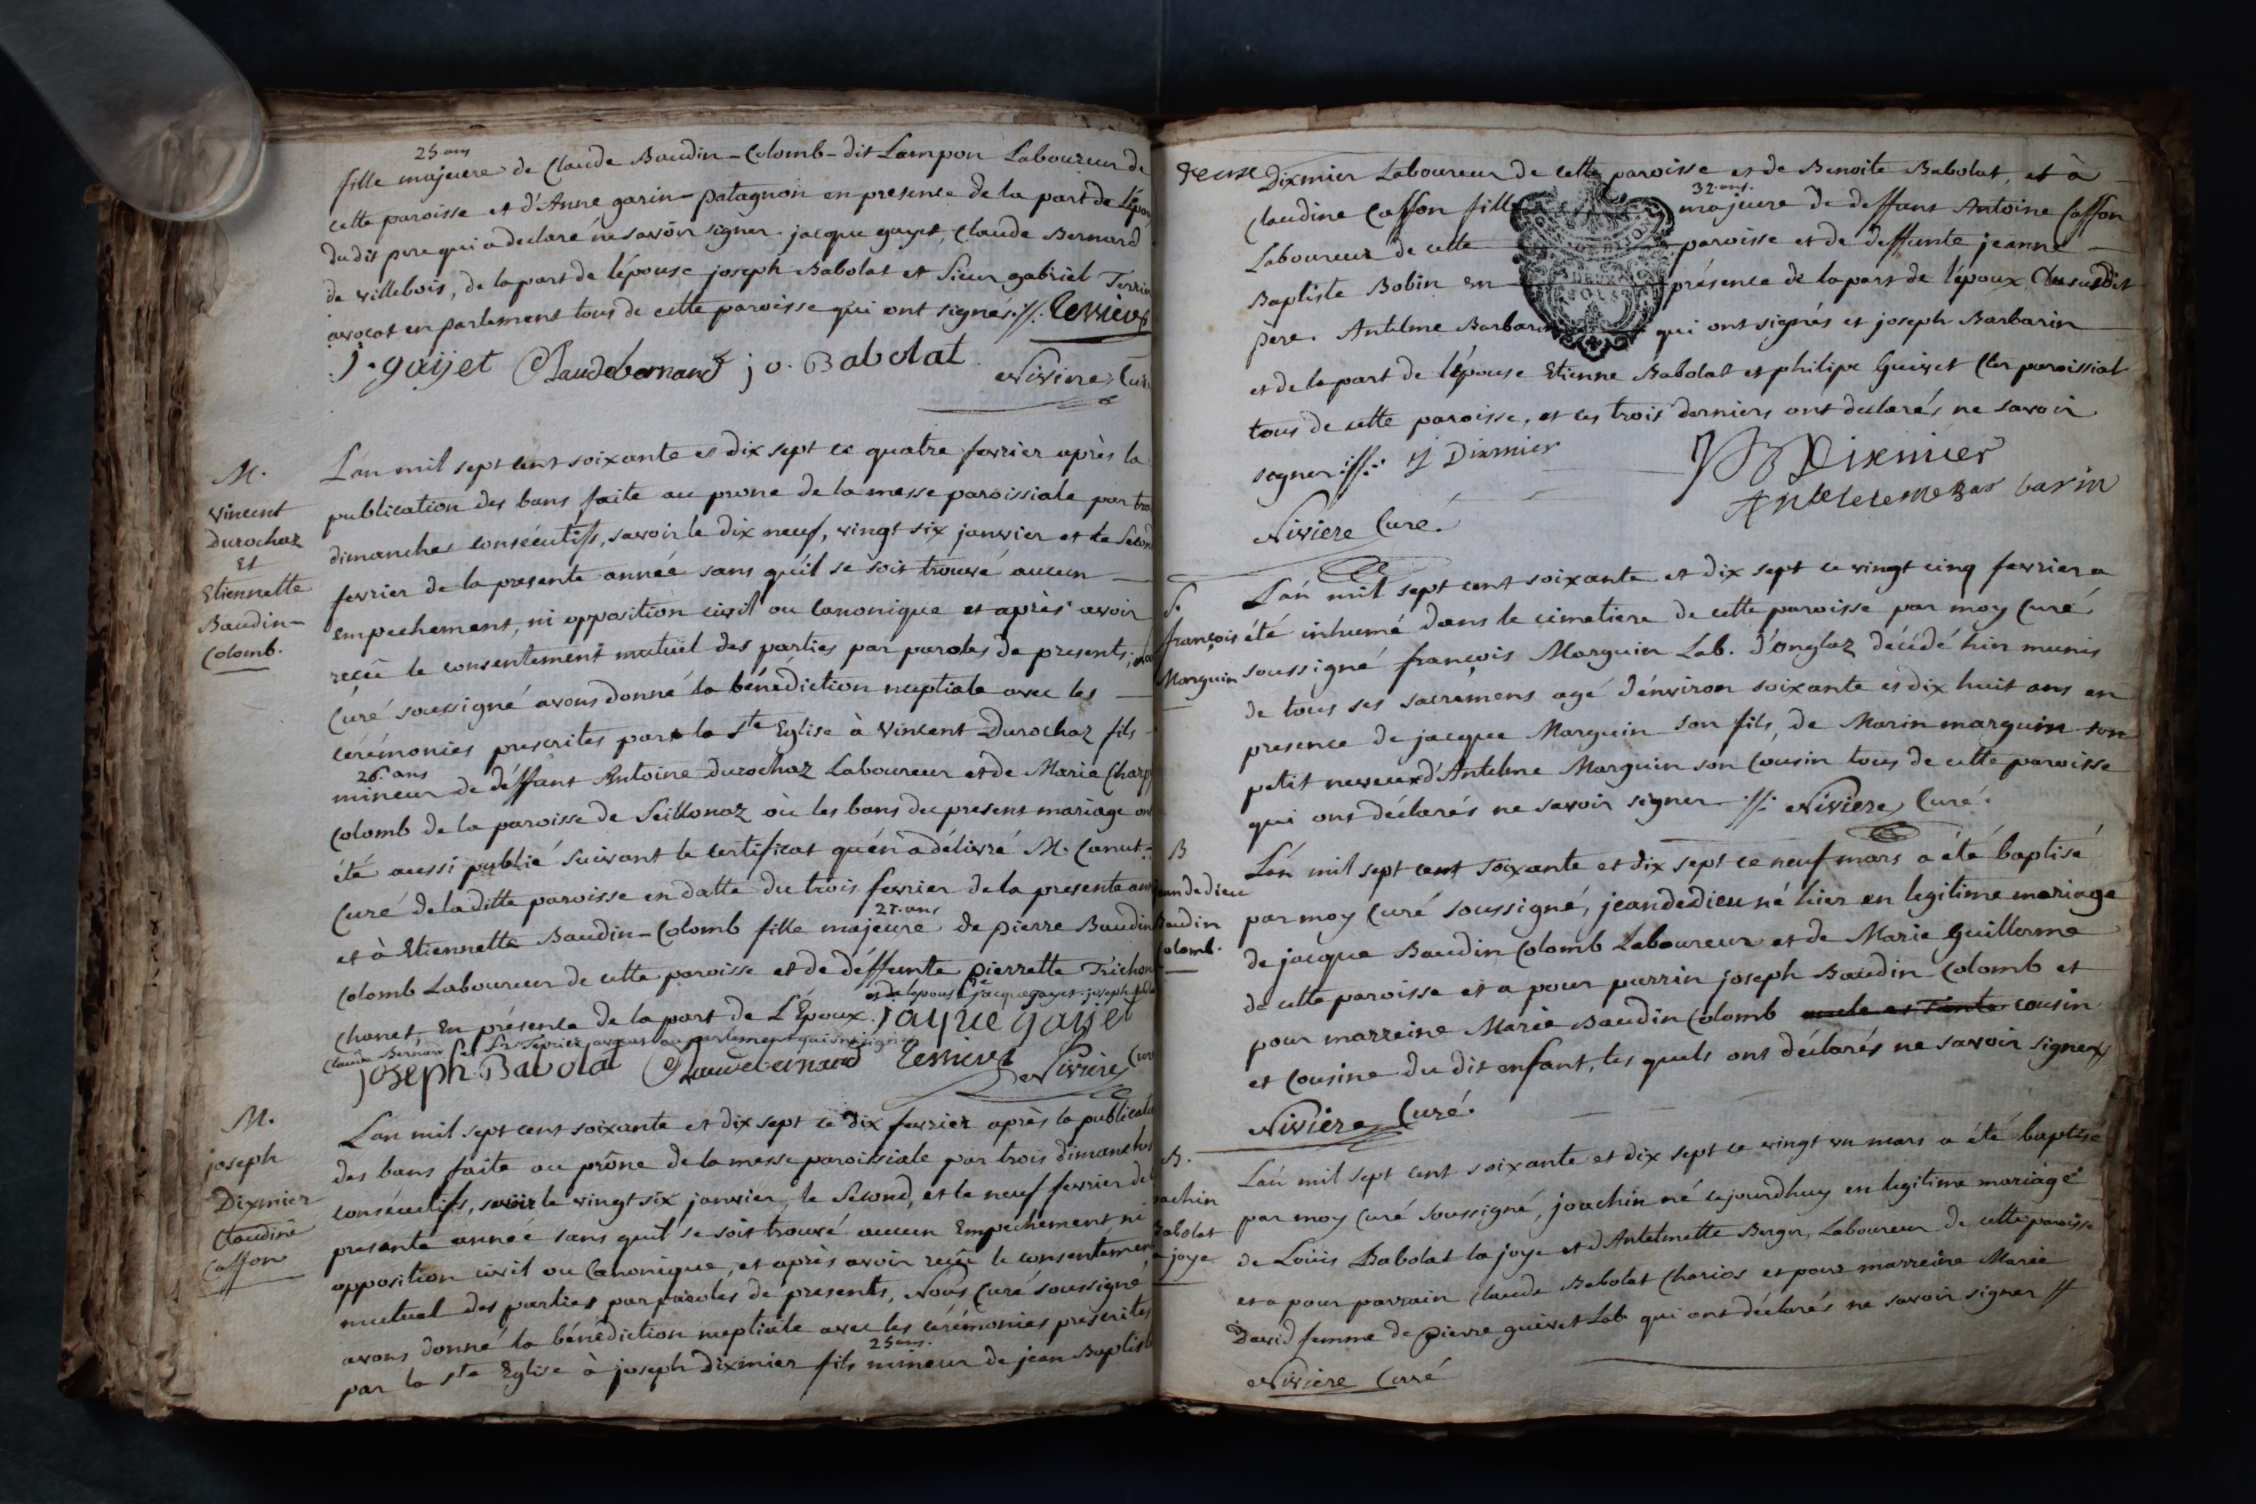 25 ans
fille majeure de Claude Baudin-Colomb-dit Lampon Laboureur de
cette paroisse et d'Anne garin-patagnon en presence de la part de l'épou
du dit pere qui a declaré ne savoir signer. jacque gayet, Claude Bernard
de villebois, de la part de l'épouse joseph Babolat et Sieur gabriel
avocat en parlement tous de cette paroisse qui ont signés.//.
j. gaijet Claude bernard jo. Babolat
Niviere Curé
M.
Vincent
Durochaz
Et
Etiennette
Baudin-
Colomb.
L'an mil sept cent soixante et dix sept ce quatre fevrier après la
publication des bans faite au prone de la messe paroissiale par
dimanches consécutifs, savoir le dix neuf, vingt six janvier et le Second
fevrier de la presente année sans qu'il se soit trouvé aucun
empechement, ni opposition civil ou canonique et après avoir
reçû le consentement mutüel des parties par paroles de presents,
Curé soussigné avons donné la bénédiction nuptiale avec les
cérémonies prescrites par la Ste Eglise à Vincent Durochaz fils
26 ans
mineur de déffunt Antoine durochaz Laboureur et de Marie
Colomb de la paroisse de Seillonaz où les bans du present mariage on
été aussi publié suivant le certificat qu'en a délivré M. Canut
Curé de la ditte paroisse en datte du trois fevrier de la presente
27 ans
et à Etiennette Baudin-Colomb fille majeure de pierre Baudin
Colomb Laboureur de cette paroisse et de déffunte pierrette Trichon
et de l'epouse jacque gayet joseph
Chanet En présence de la part de L'Epoux. jaque gaijet
Claude Bernard et avocat au parlement qui ont signé
joseph Babolat Claude bernard Niviere Curé
M.
joseph
Dixmier
Claudine
Casson
L'an mil sept cent soixante et dix sept ce dix fevrier après la publicat
des bans faite au prône de la messe paroissiale par trois dimanches
consécutifs, savoir le vingt six janvier, le Second, et le neuf fevrier de
presente année sans qu'il se soit trouvé aucun Empechement ni
opposition civil ou Canonique, et après avoir reçû le consentement
mutuel des parties par paroles de presents, Nous Curé soussigné,
avons donné la bénédiction nuptiale avec les cérémonies prescrites
25 ans.
par la Ste Eglise à joseph Dixmier fils mineur de jean Baptiste
Dixmier Laboureur de cette paroisse et de Benoite Babolat, et à
32 ans.
Claudine Casson fille majeure de deffunt Antoine Casson
Laboureur de cette paroisse et de deffunte jeanne
Baptiste Bobin en présence de la part de l'époux Du susdit
pere. Antelme Barbarin qui ont signés et joseph Barbarin
et de la part de l'épouse Etienne Babolat et philipe Guivet Cler paroissial
tous de cette paroisse, et ces trois derniers ont declarés ne savoir
signer.//. j Dixmier JB Dixmier
Niviere Curé.
S.
françois
Marguin
L'an mil sept cent soixante et dix sept ce vingt cinq fevrier a
été inhumé dans le cimetiere de cette paroisse par moy Curé
soussigné françois Marguin Lab. d'onglaz décédé hier munis
de tous ses sacremens agé d'environ soixante et dix huit ans en
presence de jacque Marguin son fils, de Marin marguin son
petit neveux d'Antelme Marguin son Cousin tous de cette paroisse
qui ont déclarés ne savoir signer .//. Niviere Curé.
B
jeandedieu
Baudin
Colomb.
L'an mil sept cent soixante et dix sept ce neuf mars a été baptisé
par moy Curé soussigné, jeandedieu né hier en legitime mariage
de jacque Baudin Colomb Laboureur et de Marie Guillermo
de cette paroisse et a pour parrin joseph Baudin Colomb et
pour marreine Marie Baudin Colomb oncle et Tante cousin
et Cousine du dit enfant, les quels ont déclarés ne savoir signer
Niviere Curé.
B.
joachin
Babolat
la joye
L'an mil sept cent soixante et dix sept ce vingt un mars a été baptisé
par moy Curé soussigné, joachin né ce jourdhuy en legitime mariage
de Loüis Babolat la joye et d'Antelmette Berger, Laboureur de cette paroisse
et a pour parrain Claude Babolat Charios et pour marreine Marie
David femme de pierre guivet Lab qui ont déclarés ne savoir signer //
Niviere Curé